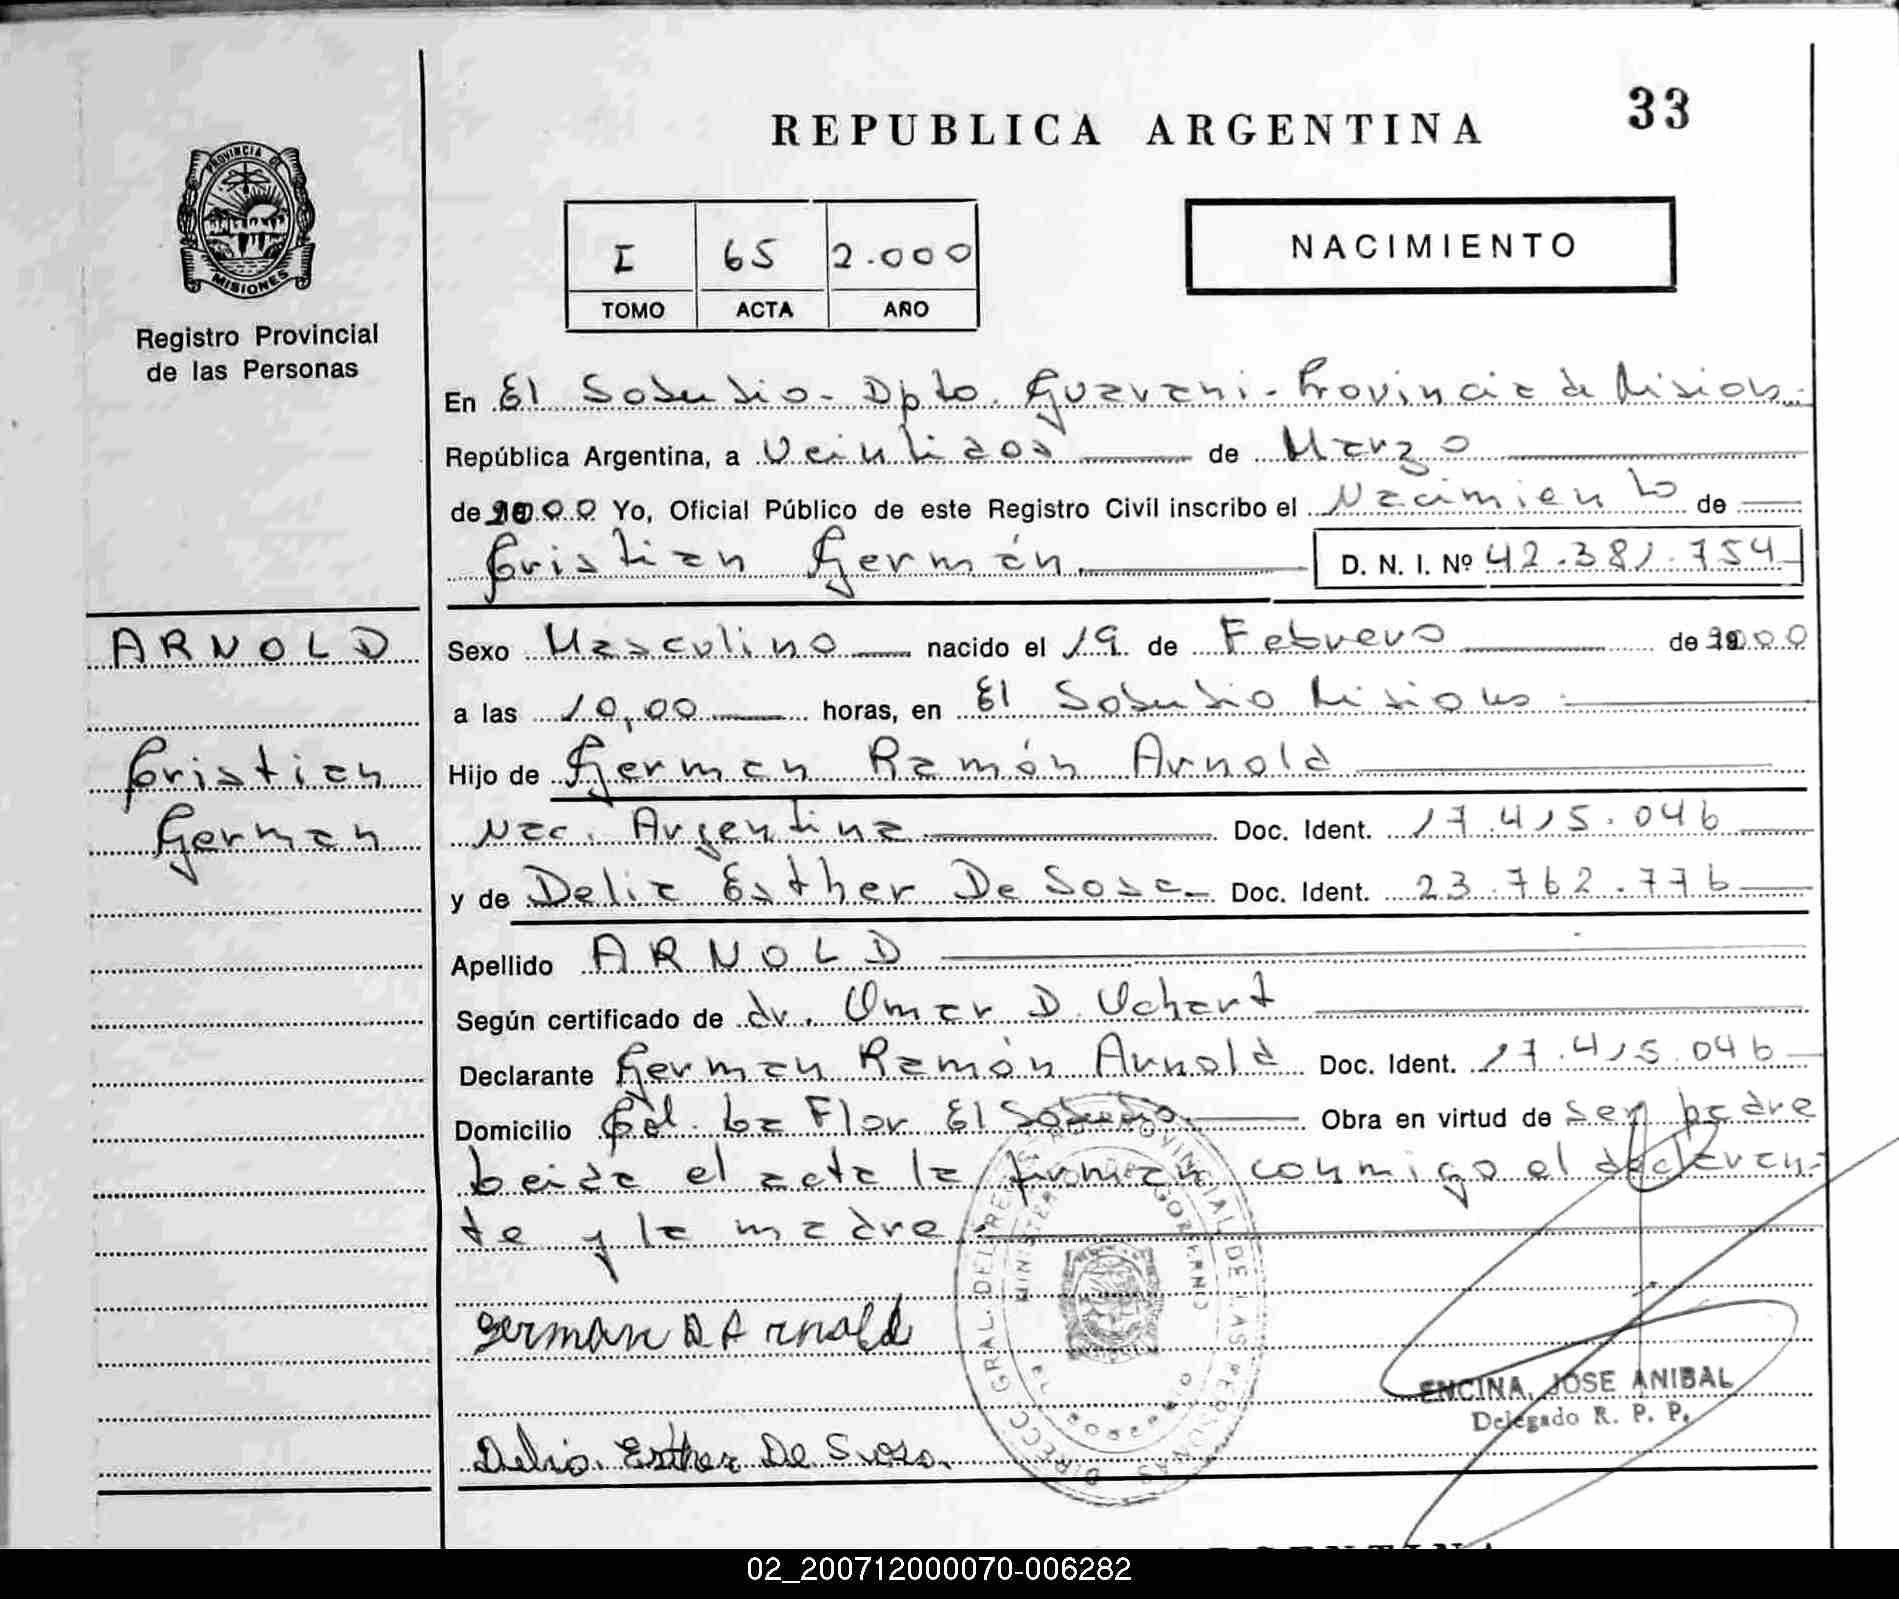 REPUBLICA ARGENTINA
33
PROVINCIA DE
MISIONES
Registro Provincial
de las Personas
I 65 2.000
TOMO ACTA AÑO
NACIMIENTO
En El Soberbio - Dpto. Guarani - Provincia de Misiones.
República Argentina, a Veintidos de Marzo
de 2000 Yo, Oficial Público de este Registro Civil inscribo el Nacimiento de
Cristian Germán. D. N. I. Nº 42.381.754
ARNOLD
Cristian
German
Sexo Masculino nacido el 19 de Febrero de 2000
a las 10,00 horas, en El Soberbio Misiones
Hijo de German Ramón Arnold
Nac. Argentina Doc. Ident. 17.415.046
y de Delia Esther De Sosa Doc. Ident. 23.762.776
Apellido ARNOLD
Según certificado de dr. Omar D. Uchart
Declarante German Ramón Arnold Doc. Ident. 17.415.046
Domicilio Col. La Flor El Soberbio Obra en virtud de ser padre
Leida el acta la firman conmigo el declaran-
te y la madre.
German R Arnold
Delia. Esther De Sosa.
DIRECC. GRAL. DEL REG. PROVINCIAL DE LAS PERSONAS
ENCINA, JOSE ANIBAL
Delegado R. P. P.
02_200712000070-006282